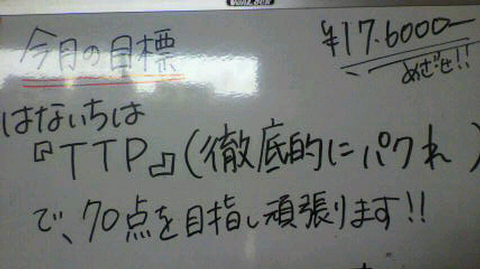 今月の目標
¥17.6000ー
めざせ!!
はないちは
『TTP』(徹底的にパクれ)
で、70点を目指し頑張ります!!